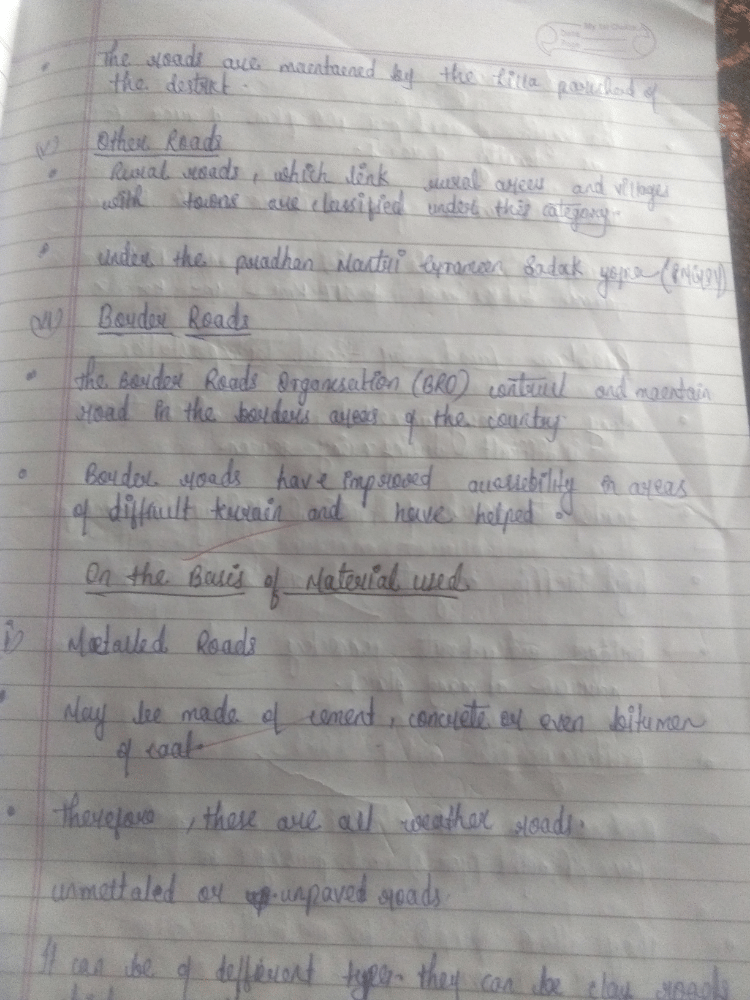 My Dr. Choice
Date
Page
• The roads are maintaened by the zilla parishad of
the destrict.
(v) Other Roads
• Rural roads, which link rural areas and villages
with towns are classified under this category.
• under the pradhan Mantri Grameen Sadak yojna (PMGSY)
(vi) Border Roads
• the Border Roads Organesation (BRO) contruct and maentain
road in the borders areas of the country.
• Border roads have improved accessibility in areas
of difficult terrain and have helped.
On the Basis of Material used
i) Metalled Roads
• May be made of cement, concrete or even bitumen
of coal.
• Therefore, these are all weather roads.
unmettaled or unpaved roads
It can be of defferent types. they can be clay roads